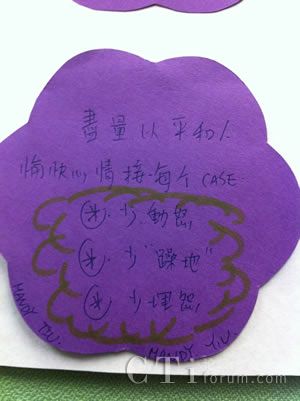 盡量以平和、
愉快心情接每个 CASE.
㊍. 少動怒
㊍. 少"躁地"
㊍. 少埋怨
MANDY YIU.
MANDY YIU.
CTiforum.com